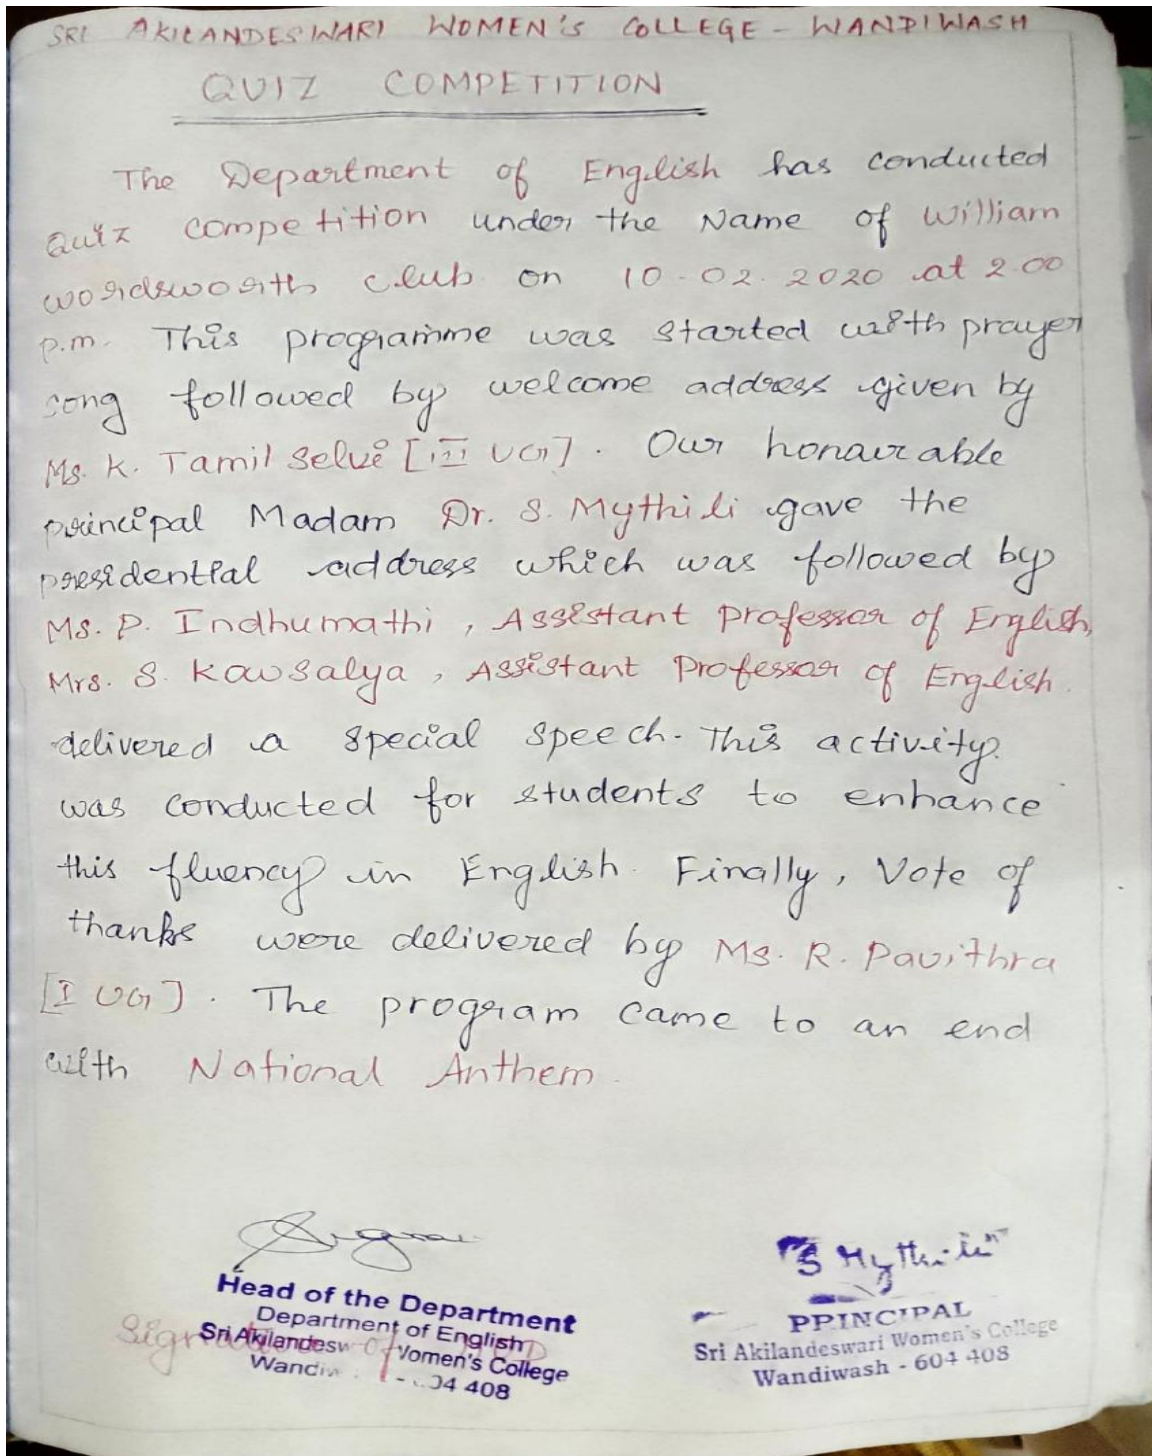 SRI AKILANDESWARI WOMEN'S COLLEGE - WANDIWASH
QUIZ COMPETITION
The Department of English has conducted
Quiz competition under the Name of William
wordsworth club on 10-02-2020 at 2.00
p.m. This programme was started with prayer
song followed by welcome address given by
Ms. K. Tamil selvi [III UG]. Our honourable
principal Madam Dr. S. Mythili gave the
presidential address which was followed by
Ms. P. Indhumathi, Assistant professor of English,
Mrs. S. Kawsalya, Assistant Professor of English.
delivered a special speech. This activity
was conducted for students to enhance
this fluency in English. Finally, Vote of
thanks were delivered by Ms. R. Pavithra
[I UG]. The program came to an end
with National Anthem.
S Mythili
Head of the Department
Department of English
Sri Akilandesw Women's College
Signature of HOD
408
PRINCIPAL
Sri Akilandeswari Women's College
Wandiwash - 604 408